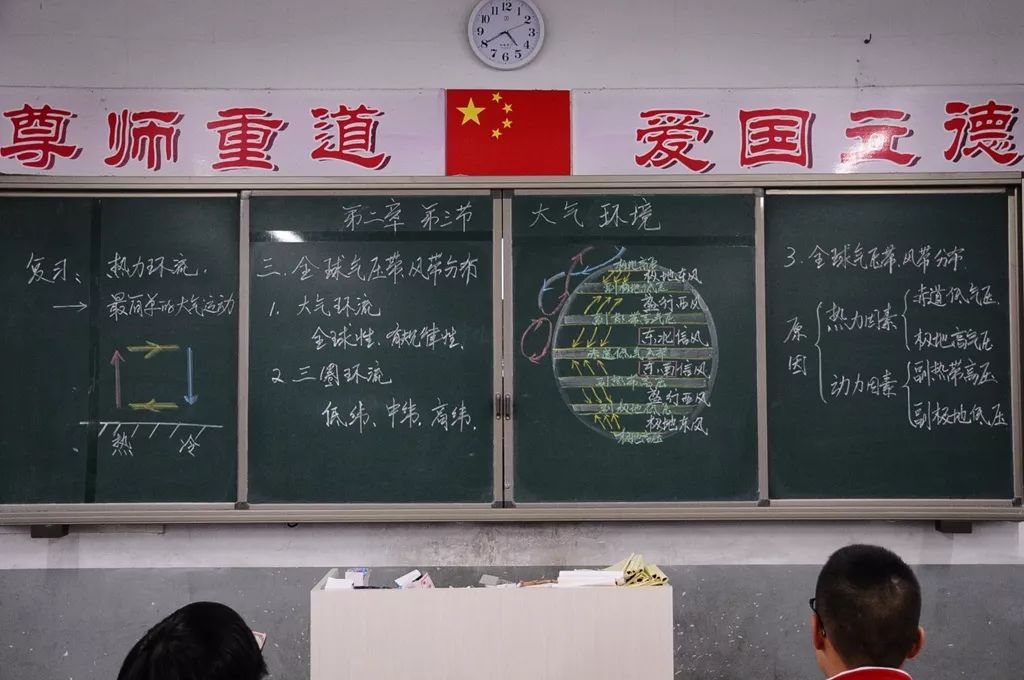 12
1
2
3
4
5
6
7
8
9
10
11
尊师重道
爱国立德
第二章 第三节 大气环境
复习: 热力环流.
→ 最简单的大气运动
热 冷
三.全球气压带、风带分布
1. 大气环流
全球性、有规律性、
2.三圈环流
低纬、中纬、高纬.
极地高压
极地东风
副极地低压
盛行西风
副热带高压
东北信风
赤道低气压带
东南信风
副热带高压
盛行西风
副极地低压
极地东风
极地高压
3.全球气压带、风带分布.
原因
热力因素
赤道低气压
极地高气压
动力因素
副热带高压
副极地低压